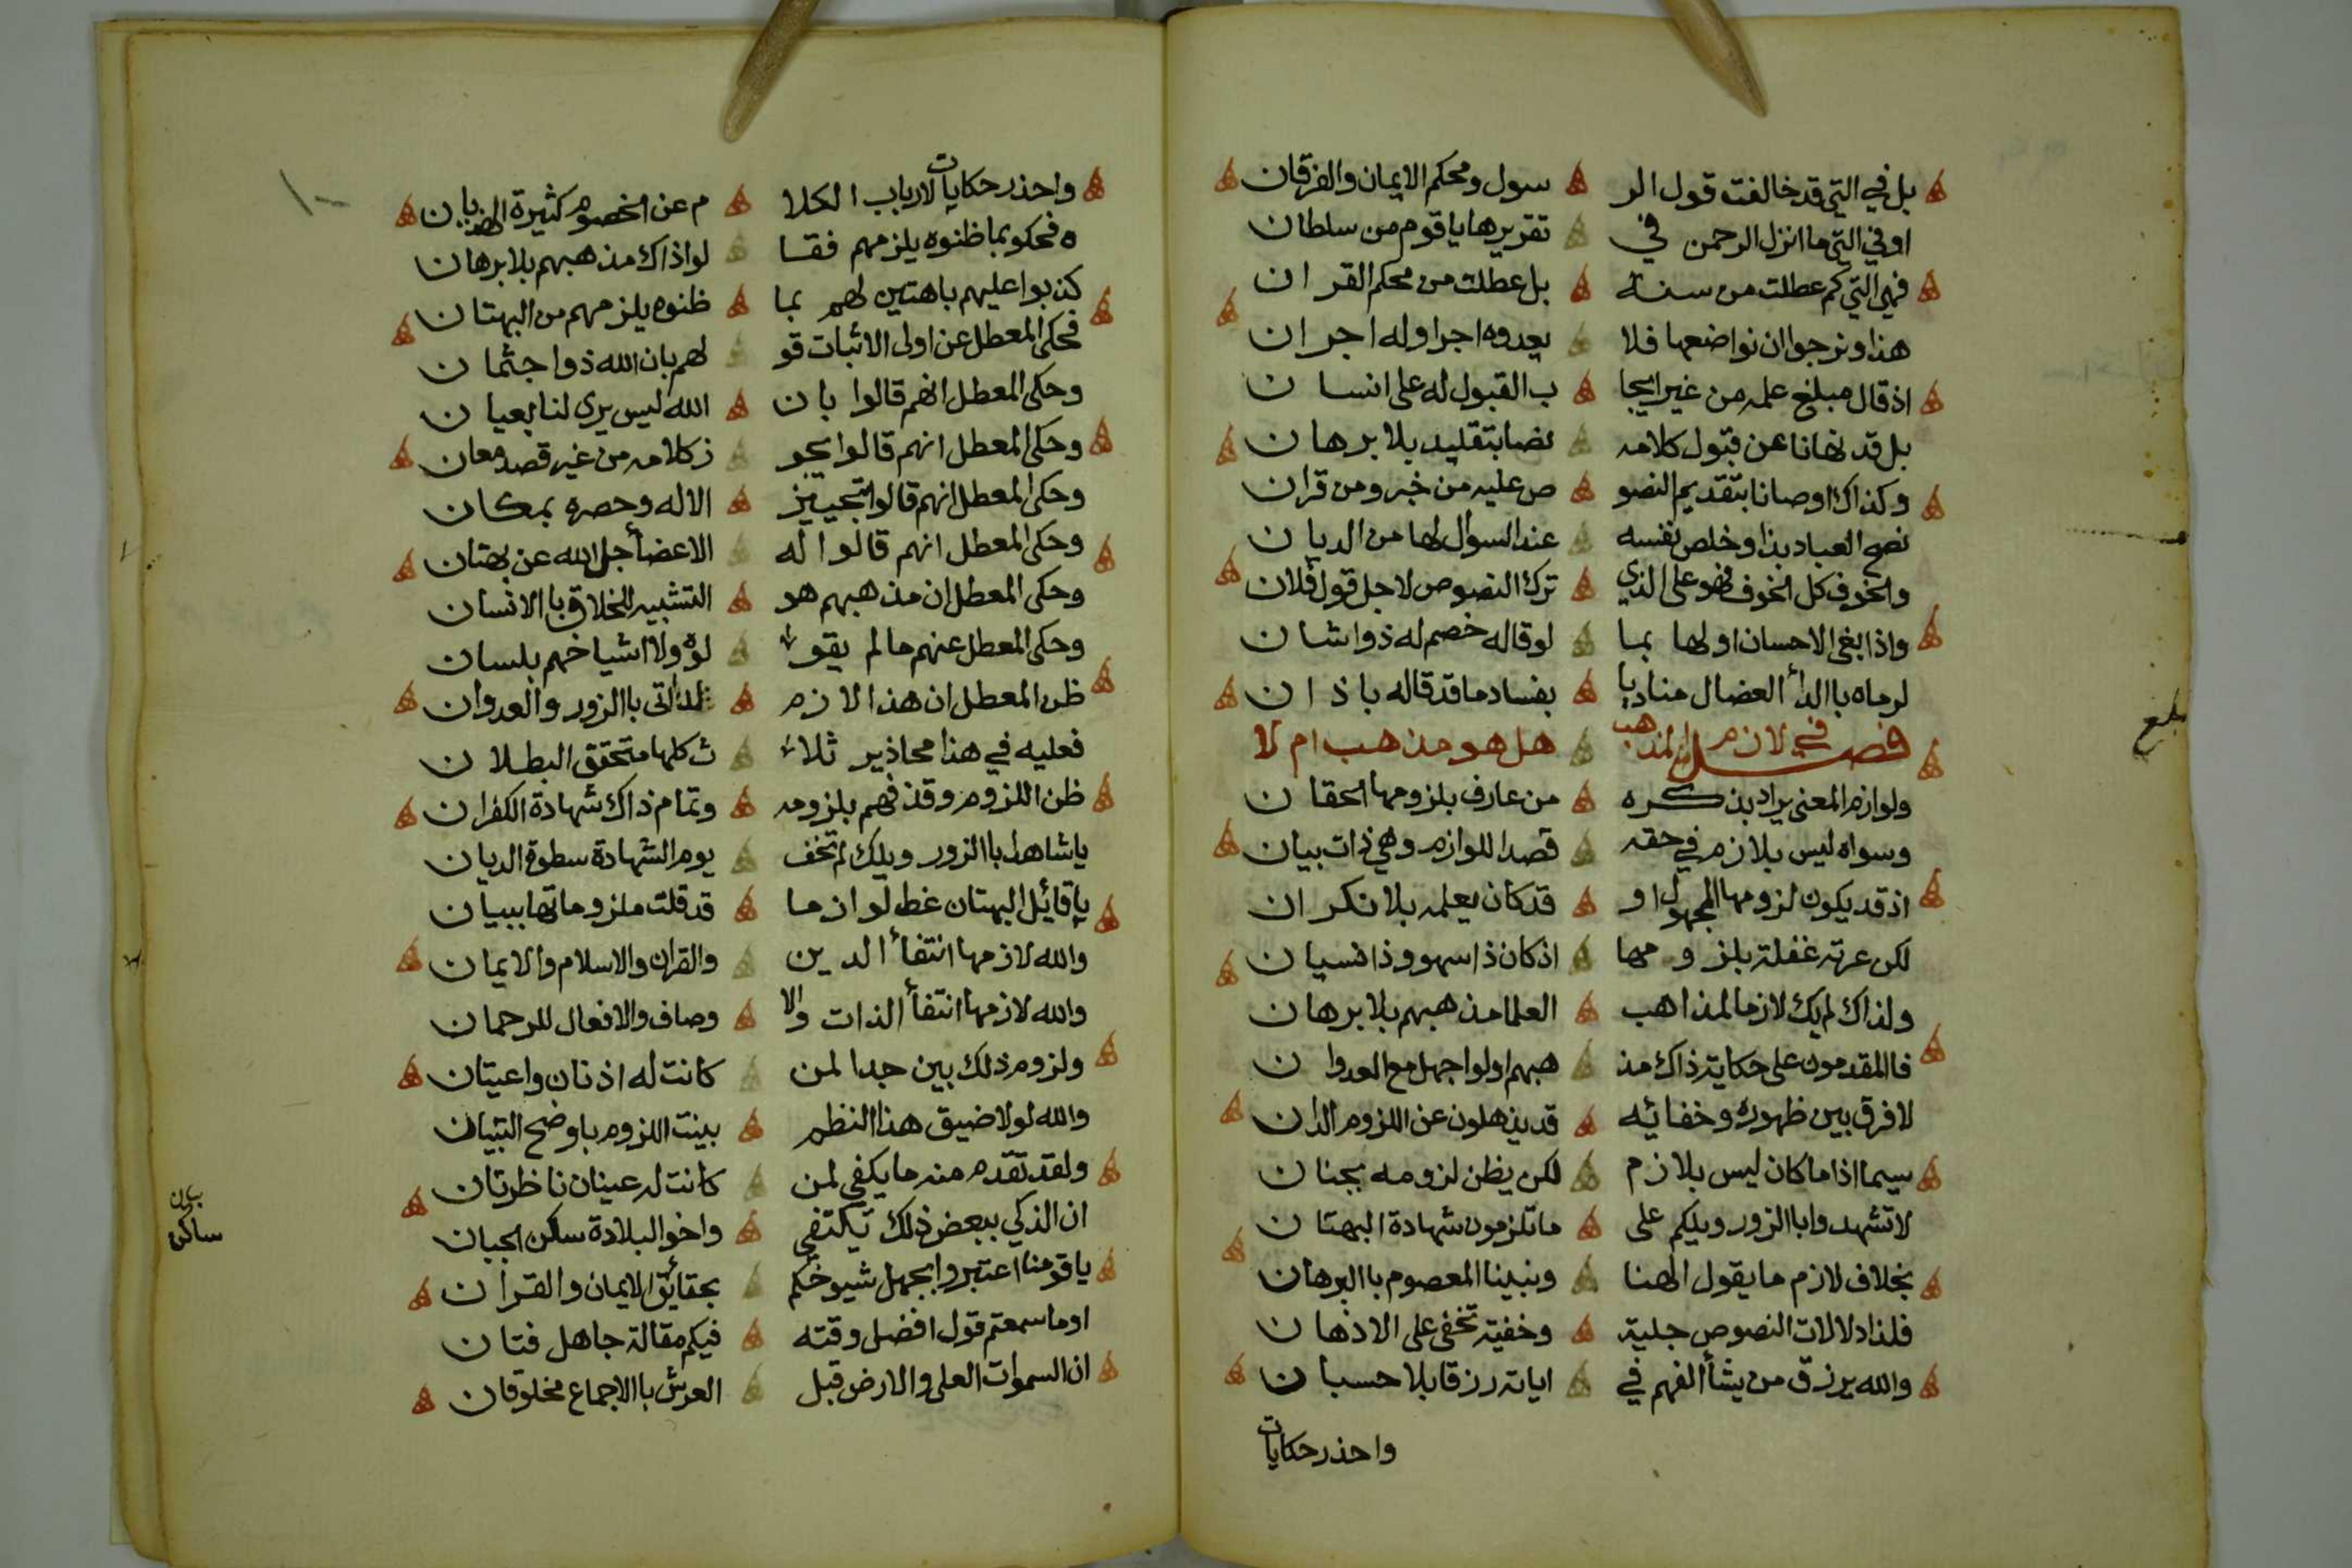 بل في التي قد خالفت قول الر سول ومحكم الايمان والفرقان
او في التي ما انزل الرحمن في تقريرها يا قوم من سلطان
فهي التي كم عطلت من سنة بل عطلت من محكم القران
هذا ونرجوا ان نواضعها فلا يعدوه اجرا وله اجران
اذ قال مبلغ علمه من غير ايجا ب القبول له على انسان
بل قد نهانا عن قبول كلامه نصا بتقليد بلا برهان
وكذاك اوصانا بتقديم النصو ص عليه من خبر ومن قران
نصح العباد بذا وخلص نفسه عند السوال لها من الديان
والخوف كل الخوف فهو على الذي ترك النصوص لاجل قول فلان
واذا بغى الاحسان اولها بما لو قاله خصم له ذوا شان
لرماه باالدأ العضال مناديا بفساد ما قد قاله باذان
فصل في لازم المذهب هل هو مذهب ام لا
ولوازم المعنى يراد بذكره من عارف بلزومها الحقان
وسواه ليس بلازم في حقه قصد اللوازم وهي ذات بيان
اذ قد يكون لزومها المجهول او قد كان يعلمه بلا نكران
لكن عرته غفلة بلزومها اذ كان ذا سهو وذا نسيان
ولذاك لم يك لازما لمذاهب العلما مذهبهم بلا برهان
فاالمقدمون على حكاية ذاك مذ هبهم اولوا جهل مع العدوان
لا فرق بين ظهوره وخفائه قد يذهلون عن اللزوم الدان
سيما اذا ما كان ليس بلازم لكن يظن لزومه بجنان
لا تشهدوا باالزور ويلكم على ما تلزمون شهادة البهتان
بخلاف لازم ما يقول الهنا ونبينا المعصوم باالبرهان
فلذا دلالات النصوص جلية وخفية تخفى على الاذهان
والله يرزق من يشأ الفهم في اياته رزقا بلا حسبان
واحذر حكايات
بلغ
واحذر حكايات لارباب الكلا م عن الخصوم كثيرة الهذيان
ه فحكو بما ظنوه يلزمهم فقا لوا ذاك مذهبهم بلا برهان
كذبوا عليهم باهتين لهم بما ظنوه يلزمهم من البهتان
فحكى المعطل عن اولى الاثبات قو لهم بان الله ذوا جثمان
وحكى المعطل انهم قالوا بان الله ليس يرى لنا بعيان
وحكى المعطل انهم قالوا يجو ز كلامه من غير قصد معان
وحكى المعطل انهم قالوا بتحييز الاله وحصره بمكان
وحكى المعطل انهم قالوا له الاعضأ جل الله عن بهتان
وحكى المعطل ان مذهبهم هو التشبيه للخلاق باالانسان
وحكى المعطل عنهم ما لم يقو لوه ولا اشياخهم بلسان
ظن المعطل ان هذا لازم فلذا اتى باالزور والعدوان
فعليه في هذا محاذير ثلا ث كلها متحقق البطلان
ظن اللزوم وقذفهم بلزومه وتمام ذاك شهادة الكفران
يا شاهدا باالزور ويلك لم تخف يوم الشهادة سطوة الديان
يا قائل البهتان غط لوازما قد قلت ملزوماتها ببيان
والله لازمها انتفأ الدين والقران والاسلام والايمان
والله لازمها انتفأ الذات والا وصاف والافعال للرحمان
ولزوم ذلك بين جدا لمن كانت له اذنان واعيتان
والله لولا ضيق هذا النظم بينت اللزوم باوضح التبيان
ولقد تقدم منه ما يكفي لمن كانت له عينان ناظرتان
ان الذكي ببعض ذلك يكتفي واخو البلادة ساكن الجبان
يا قومنا اعتبروا بجهل شيوخكم بحقائق الايمان والقران
او ما سمعتم قول افضل وقته فيكم مقالة جاهل فتان
ان السموات العلى والارض قبل العرش باالاجماع مخلوقان
بيان
ساكن